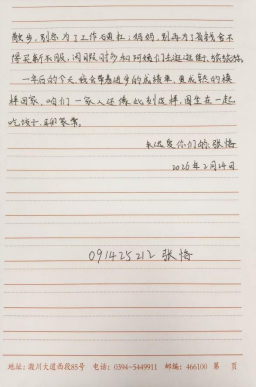 散步，别总为了工作石硬扛；妈妈，别再为了省钱舍不
得买新衣服，闲暇时多和阿姨们去逛逛街、张张张。
一年后的今天，我会带着进步的成绩单，更成熟的模
样回家，咱们一家人还像此刻这样，围坐在一起
吃饺子、唠家常。
永远爱你们的：张悟
2026年2月24日
091425212 张悟
地址：瀍川大道西段85号 电话：0394-5449911 邮编：466100 第 页